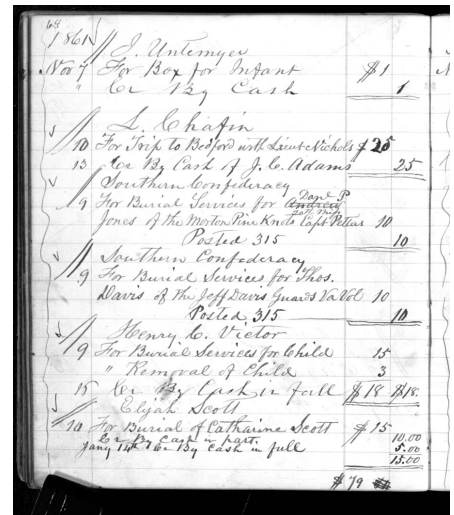 64
1861 J. Untermyer
Nov 7 For Box for Infant $1
" Cr By Cash 1
L. Chafin
10 For Trip to Bedford with Lieut Nichols $25
13 Cr By Cash of J. C. Adams 25
Southern Confederacy
9 For Burial Services for Andrew Danl P
Jones of the Morton Pine Knots Capt Peters 10
Posted 315 10
Southern Confederacy
9 For Burial Services for Thos.
Davis of the Jeff Davis Guards Va Vol 10
Posted 315 10
Henry C. Victor
9 For Burial Services for Child 15
" Removal of Child 3
15 Cr By Cash in full $18 $18.
Elijah Scott
10 For Burial of Catharine Scott $15
Cr By Cash in part. 10.00
Jany 14th Cr By Cash in full 5.00
15.00
$79